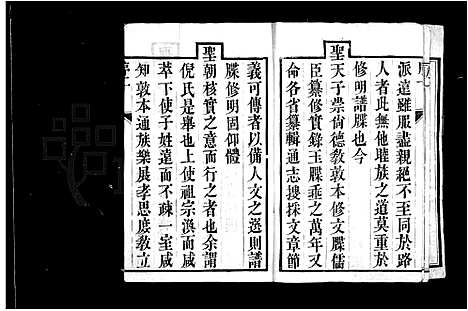 派遠雖服盡親絕不至同於路
人者此無他瑾族之道莫重於
修明譜牒也今
聖天子崇尚德教敦本修文牒儒
臣纂修實錄玉牒垂之萬年又
命各省纂輯通志搜採文章節
義可傳者以備人文之選則譜
牒修明固仰體
聖朝核實之意而行之者也余謂
倪氏是舉也上使祖宗渙而咸
萃下使子姓遠而不疎一室咸
知敦本通族樂展孝思庶教立